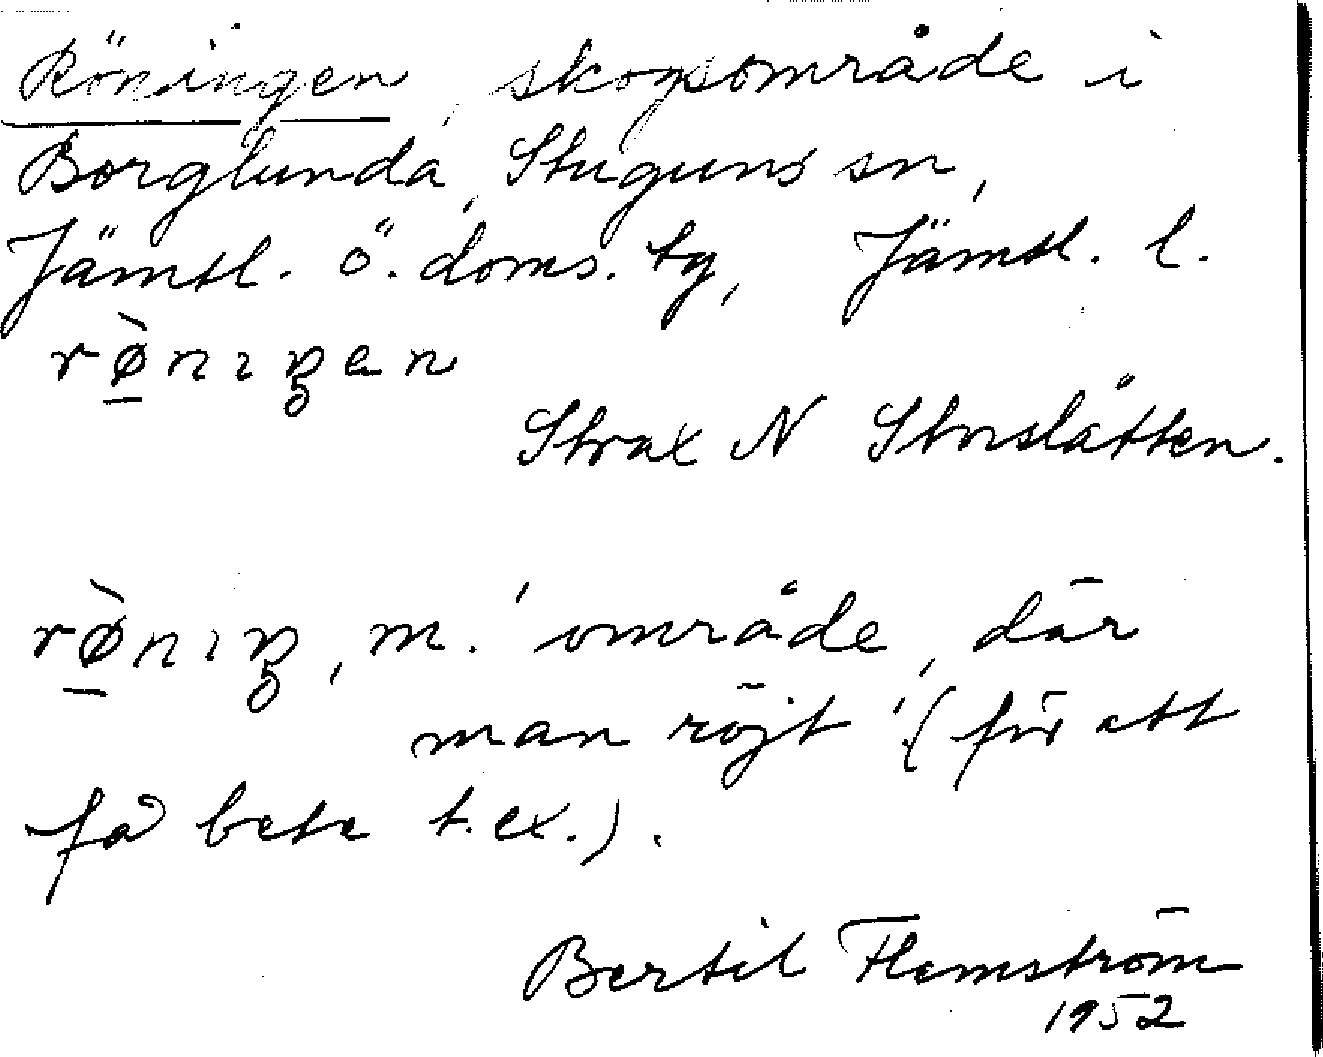 Röningen, skogsområde i
Borglunda, Stuguns sn,
Jämtl. ö. doms. tg, Jämtl. l.
rø̠̀nıŋen
Strax N Storslåtten.
rø̠̀nıŋ, m. 'område, där
man röjt' (för att
få bete t.ex.).
Bertil Flemström
1952